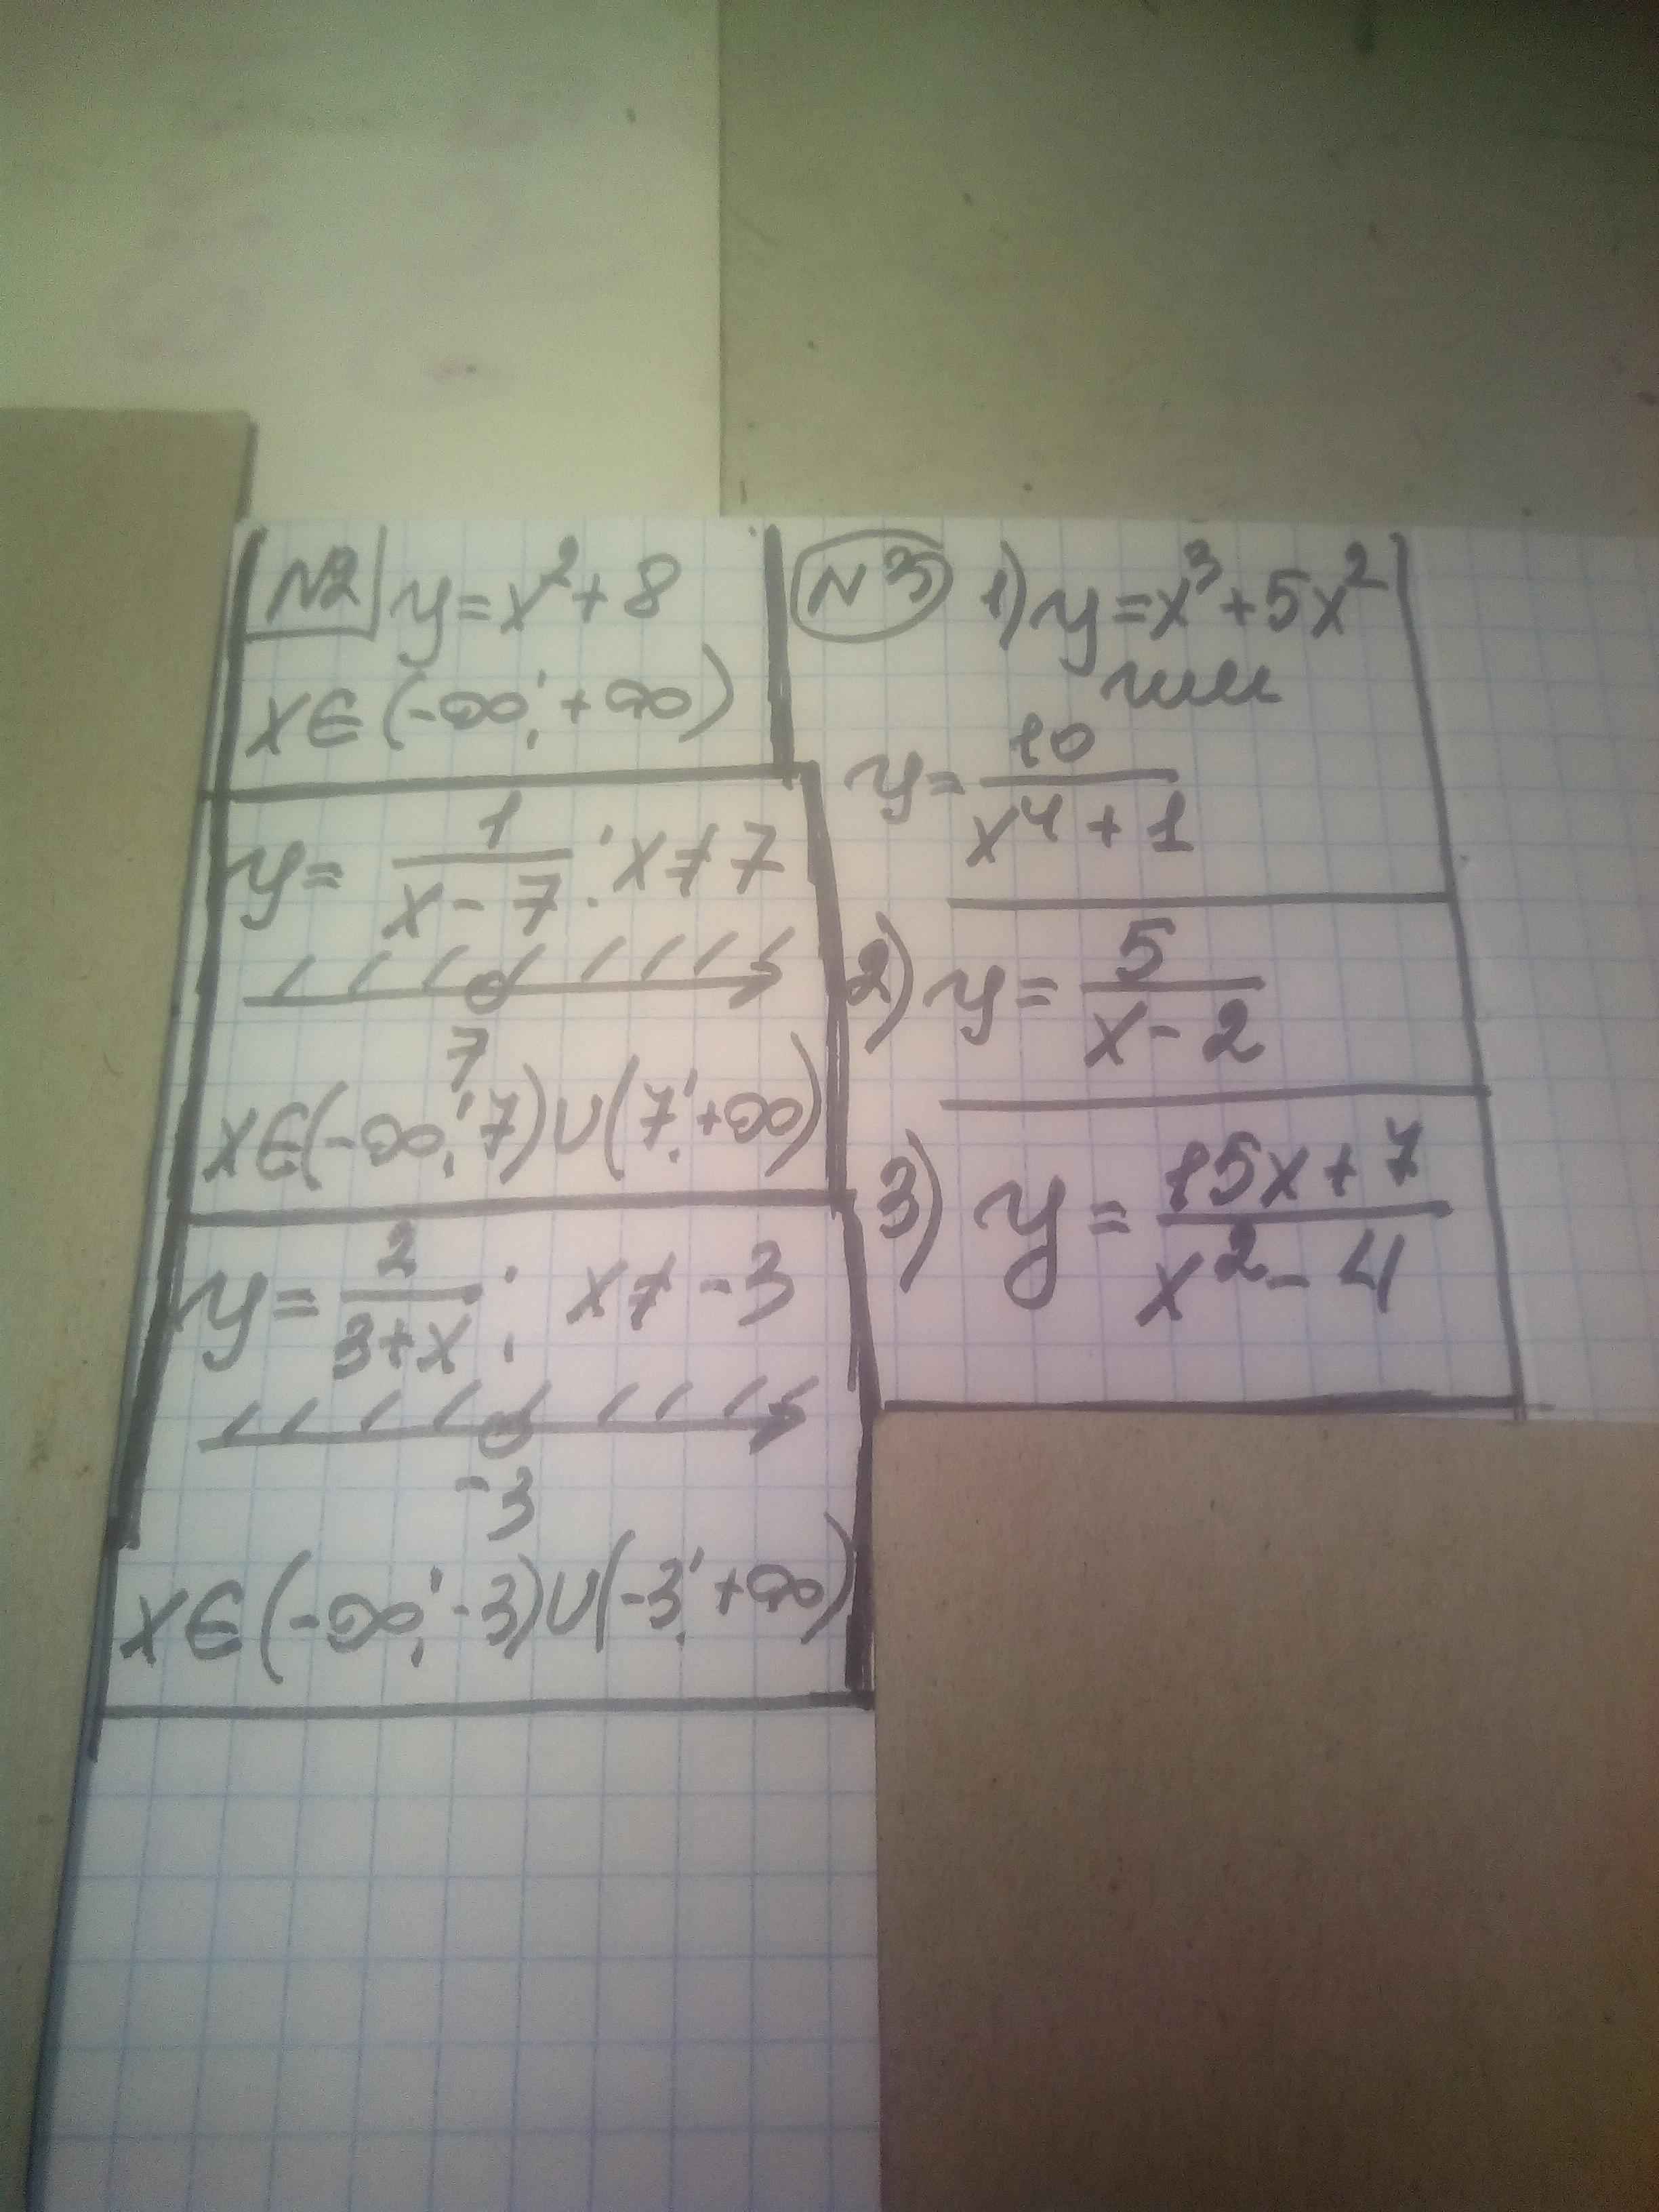 N2 y = x² + 8
x ∈ (-∞; +∞)
y = 1/(x - 7); x ≠ 7
7
x ∈ (-∞; 7) ∪ (7; +∞)
y = 2/(3 + x); x ≠ -3
-3
x ∈ (-∞; -3) ∪ (-3; +∞)
N3 1) y = x³ + 5x²
или
y = 10/(x⁴ + 1)
2) y = 5/(x - 2)
3) y = (15x + 7)/(x² - 4)